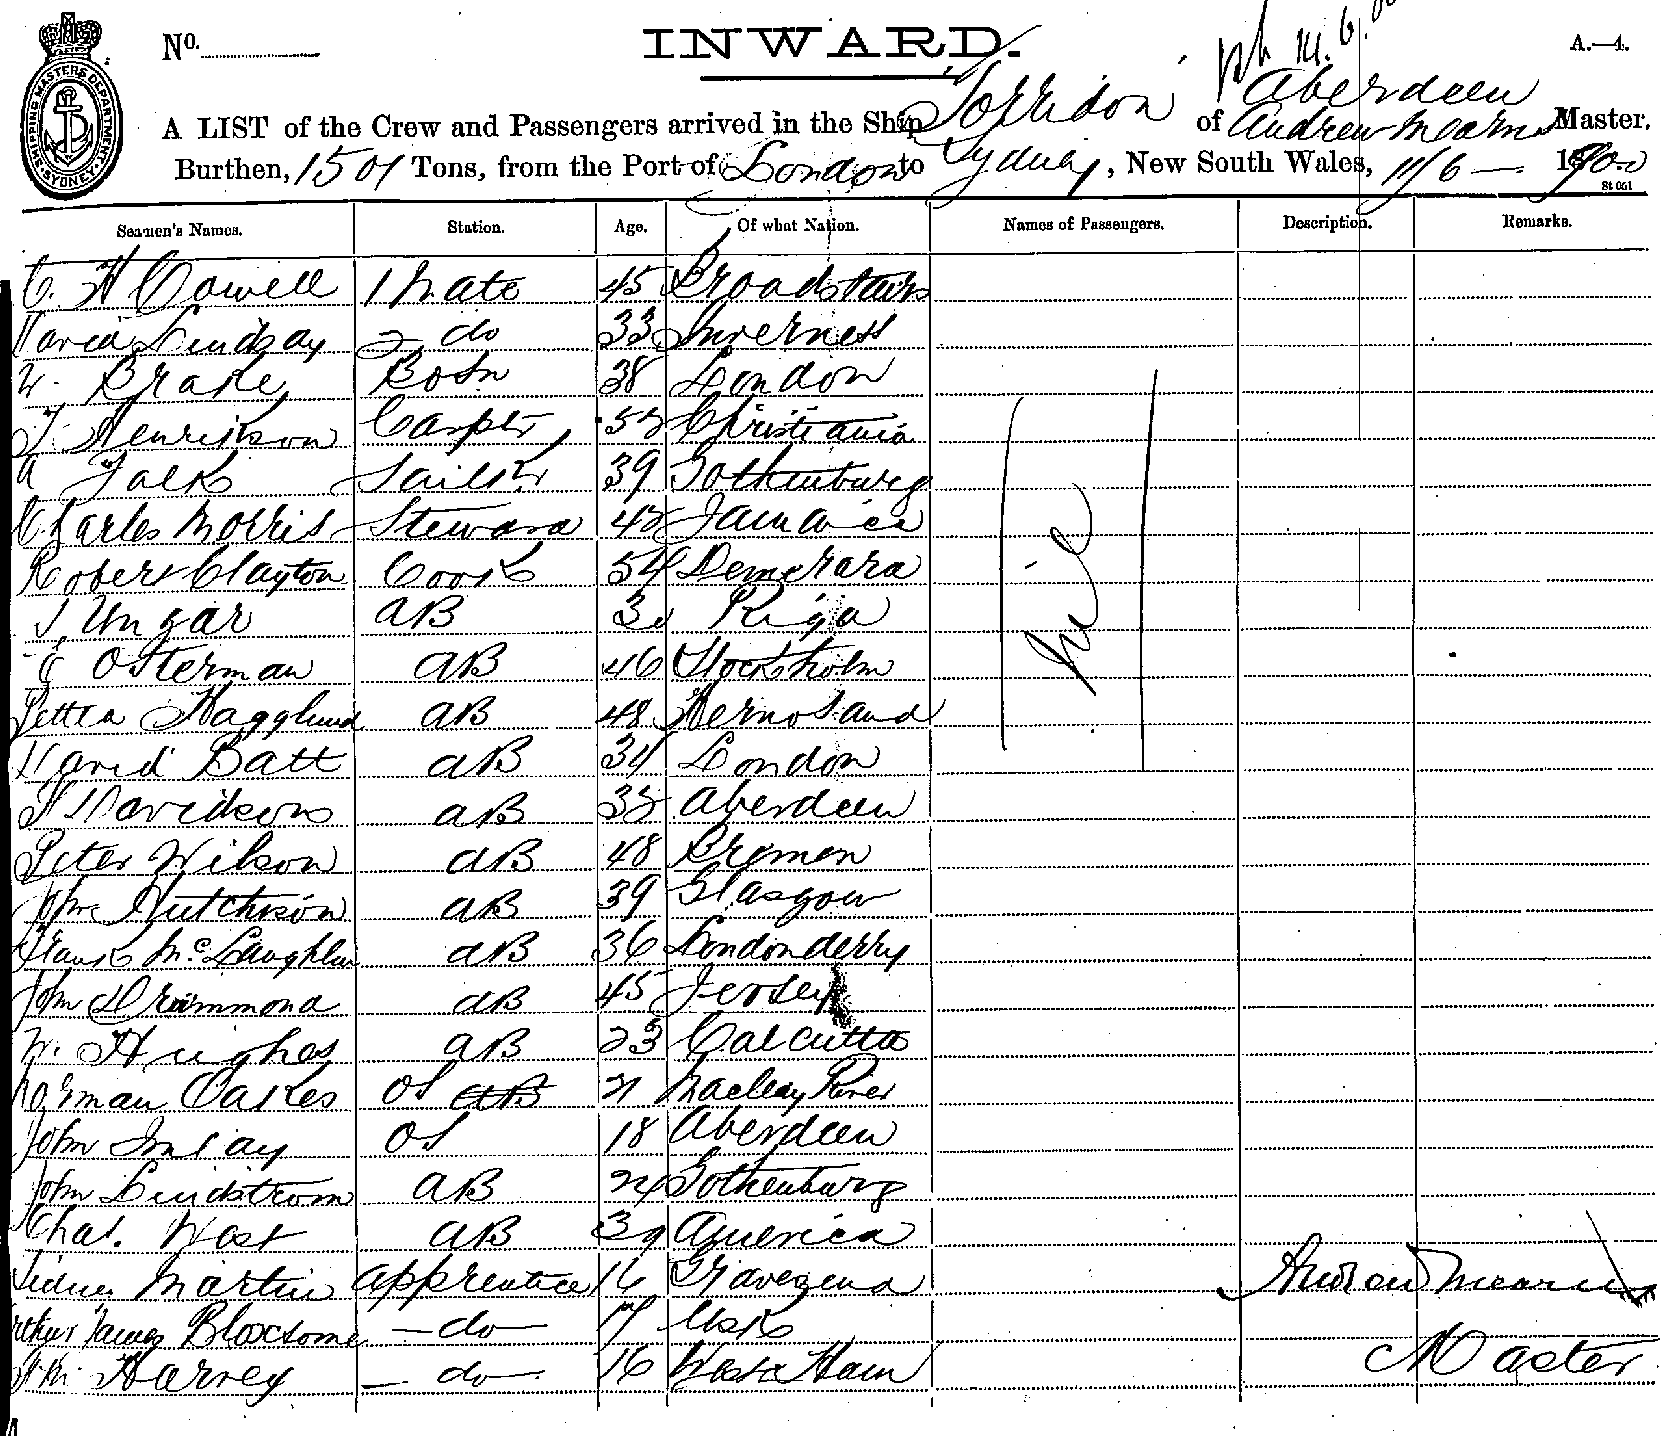 No.
INWARD.
A.—4.
SHIPPING MASTERS DEPARTMENT SYDNEY
Torridon
Aberdeen
A LIST of the Crew and Passengers arrived in the Ship of Andrew Mearns Master,
Burthen, 1501 Tons, from the Port of London to Sydney, New South Wales, 11/6 — 1900
St 051
Seamen's Names. Station. Age. Of what Nation. Names of Passengers. Description. Remarks.
C. H Cowell 1 Mate 45 Broadstairs
David Lindsay 2 do 33 Inverness
W. Brake Bosn 38 London
Henrikson Carptr Christiania
A Falk Sailmr 39 Gothenburg
Charles Morris Steward Jamaica
Robert Clayton Cook 54 Demerara
Ungar AB Riga
Osterman AB 46 Stockholm
Hagglund AB 48 Hernosand
David Batt AB 34 London
Davidson AB Aberdeen
Peter Wilson AB 48 Bremen
John Hutchison AB 39 Glasgow
Frank McLaughlin AB 36 Londonderry
John Drummond AB 45 Jersey
W. Hughes AB 23 Calcutta
Norman Oakes OS AB 21 Macleay River
John Imlay OS 18 Aberdeen
John Lindstrom AB 24 Gothenburg
Chas. West AB 39 America
Sidney Martin Apprentice 16 Gravesend
Arthur James Bloxsome — do — 17 Usk
Harvey — do — 16 West Ham
Nil
Andrew Mearns
Master